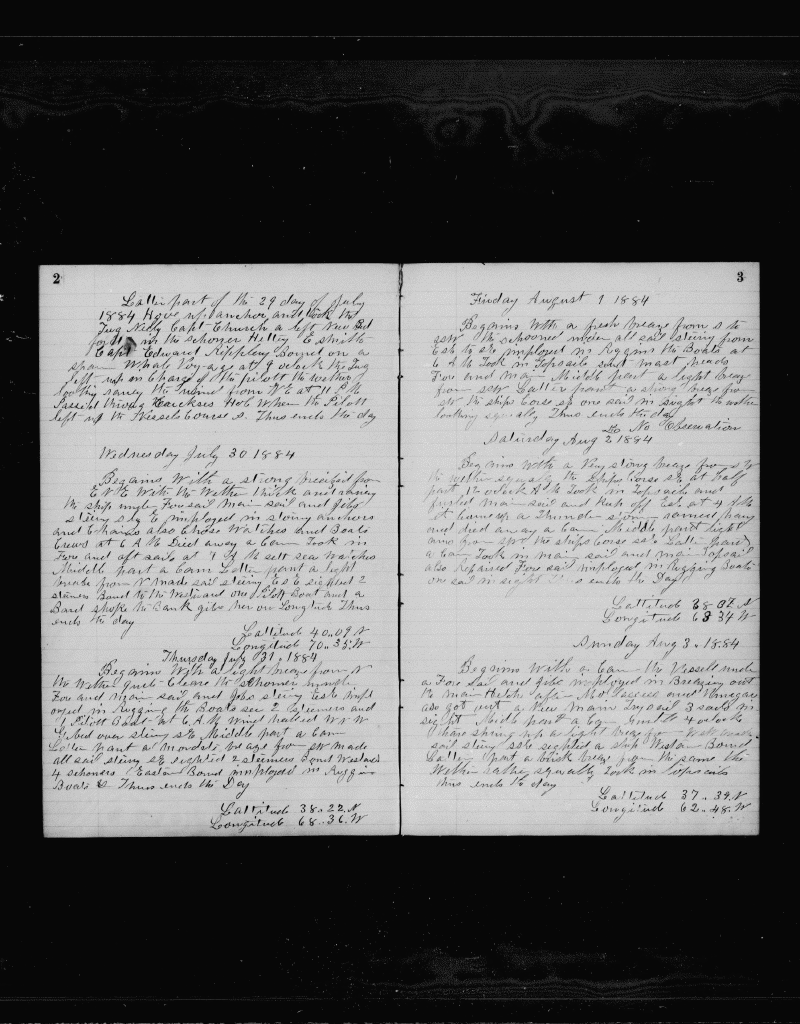 2
Latter part of the 29 day of July
1884 Hove up anchor and took the
Tug Nelly Capt Church a left New Bed
ford in the schoner Hetty E
Capt Edward Bound on a
Whale Voyage at 9 oclock the Tug
left us in Charge of the pilott the wether
looking raney the wind from N E at 11 P.M.
Passed Hole When the Pilott
left us the Vessels Course S. Thus ends the day
Wednesday July 30 1884
Begains With a strong breeze from
E N E With the Wether thick and raney
the ships under Foresail Main sail and gibs
stering S by E imployed in stoing anchors
and Chains also Chose Watches and Boats
Crews at 6 A M Died away a Cam Took in
Fore and aft sails at 7 P M sett sea Watches
Middle part a Cam Latter part a light
breeze from N made sail stering E S E sighted 2
steners Bound to the Westward one Pilott Boat and a
Bark the Bank gibe her on Longitude Thus
ends the day
Lattitude 40..09 N
Longitude 70..35 W
Thursday July 31. 1884
Begains With a light breeze from N
the Wether Cleare the schoner under
Fore and main sail and gibs stering E S E impl
oyed in Rigging the Boats see 2 steemers and
1 Pilott Boat at 6 A M Wind halled W N W
gibed over stering S E Middle part a Cam
Latter part a breeze from SW made
all sail stering SE sighted 2 steemers Bound Westward
4 schoners Easton Bound imployed in Rigging
Boats &. Thus ends the Day
Lattitude 38..22. N
Longitude 68..36. W
3
Friday August 1 1884
Begains With a fresh breeze from S to
SSW the schooner under all sail stering from
E S E to SE imployed in Rigging the Boats at
6 A M Took in Topsails mast heads
Fore and main Middle part a light breeze
from SSW Latter part a strong breeze from
SW the ships Corse SE one sail in sight the wether
looking squally Thus ends the day
No Observation
Saturday Aug 2 1884
Begains With a Very strong breeze from SW
the wether squally the ships Corse SE at half
past 1 oclock A M Took in Topsails and
furled main sail and Kept off E S E at 4 A M
it Comes up a Thunder storm rained hevy
and died away a Cam Middle part light
airs from the ships Corse SSE Latter part
a Cam Took in main sail and main Topsail
also Repaired Fore sail imployed in Rigging Boats
one sail in sight Thus ends the Day
Lattitude 38..07. N
Longitude 63 34 W
Sunday Aug 3. 1884
Begains With a Cam the Vessell under
a Fore sail and gibs imployed in Breaking out
the main Hatch after Molasses and Vinegar
also got out a New Main Trysail 3 sails in
sight Middle part a Cam until 4 oclock
thare spring up a light breeze from
sail stering SSE sighted a ship Westan Bound
Latter part a brisk breeze from the same the
Wether rather squally took in topsails
thus ends the day
Lattitude 37..39. N
Longitude 62..48. W